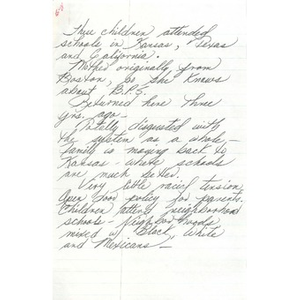 Three children attended
schools in Kansas, Texas
and California.
Mother originally from
Boston, so she knows
about B.P.S.
Returned here three
yrs. ago.
Totally disgusted with
the system as a whole -
family is moving back to
Kansas - where schools
are much better.
Very little racial tension,
Open door policy for parents.
Children attend neighborhood
schools - neighborhoods
mixed w/ Black, White
and Mexicans -